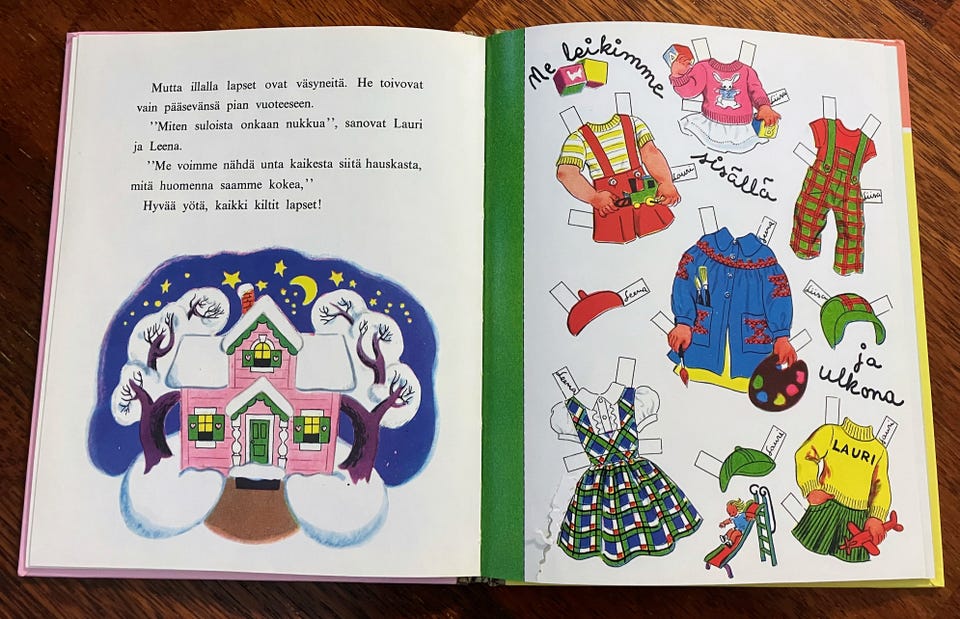 Mutta illalla lapset ovat väsyneitä. He toivovat
vain pääsevänsä pian vuoteeseen.
”Miten suloista onkaan nukkua”, sanovat Lauri
ja Leena.
”Me voimme nähdä unta kaikesta siitä hauskasta,
mitä huomenna saamme kokea,”
Hyvää yötä, kaikki kiltit lapset!
Me leikimme
Liisa
sisällä
Lauri
Liisa
Leena
Leena
Liisa
ja
ulkona
Leena
Lauri
Lauri
LAURI